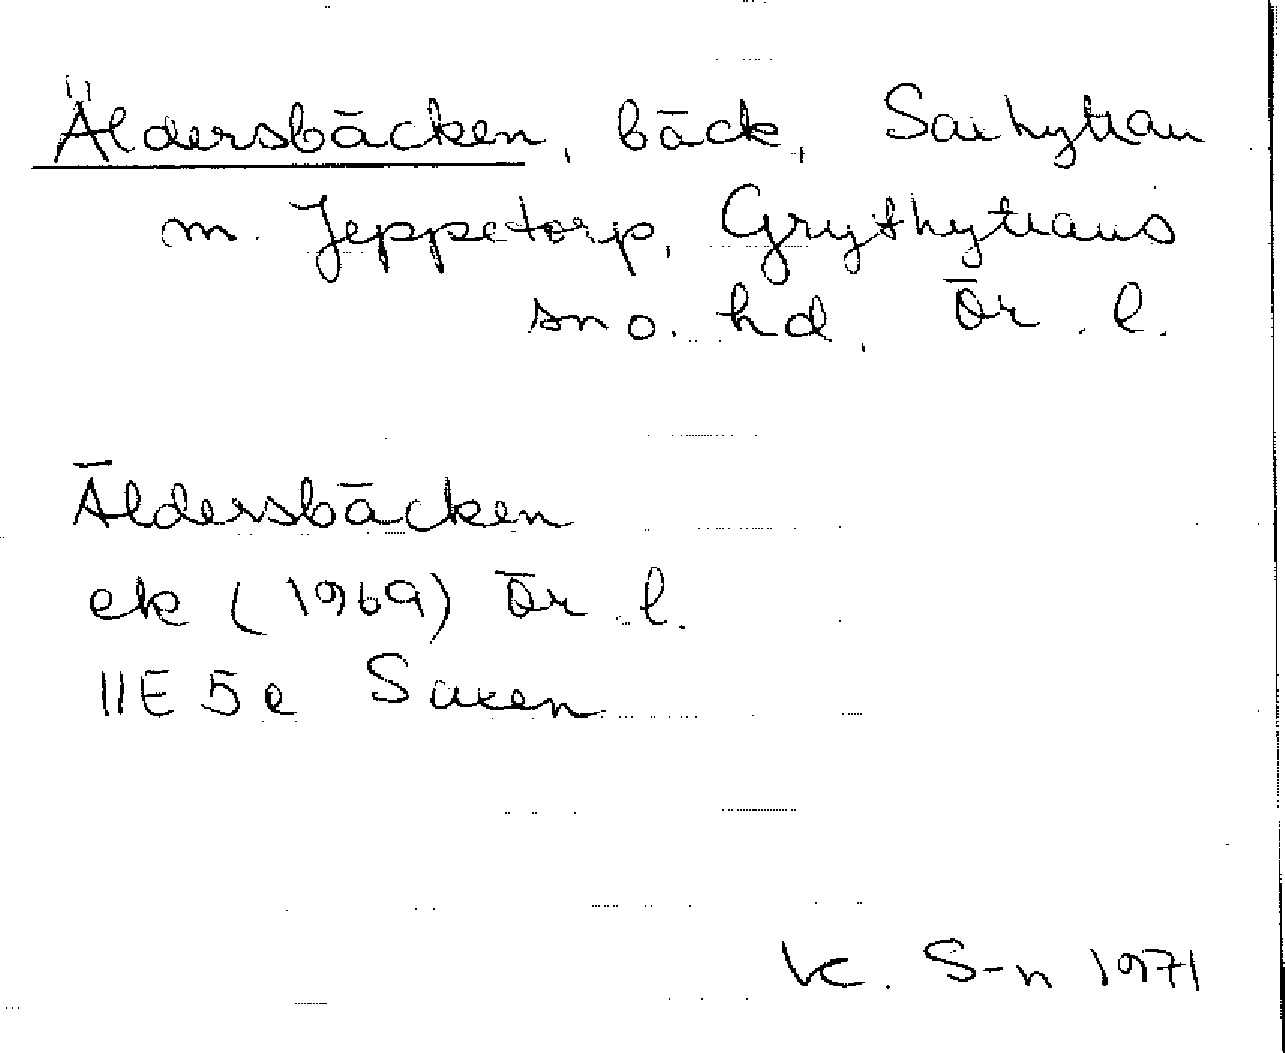 Äldersbäcken, bäck, Saxhyttan
m. Jeppetorp, Grythyttans
sn o. hd, Ör. l.
Äldersbäcken
ek (1969) Ör. l.
11E 5e Saxen
K. S-n 1971